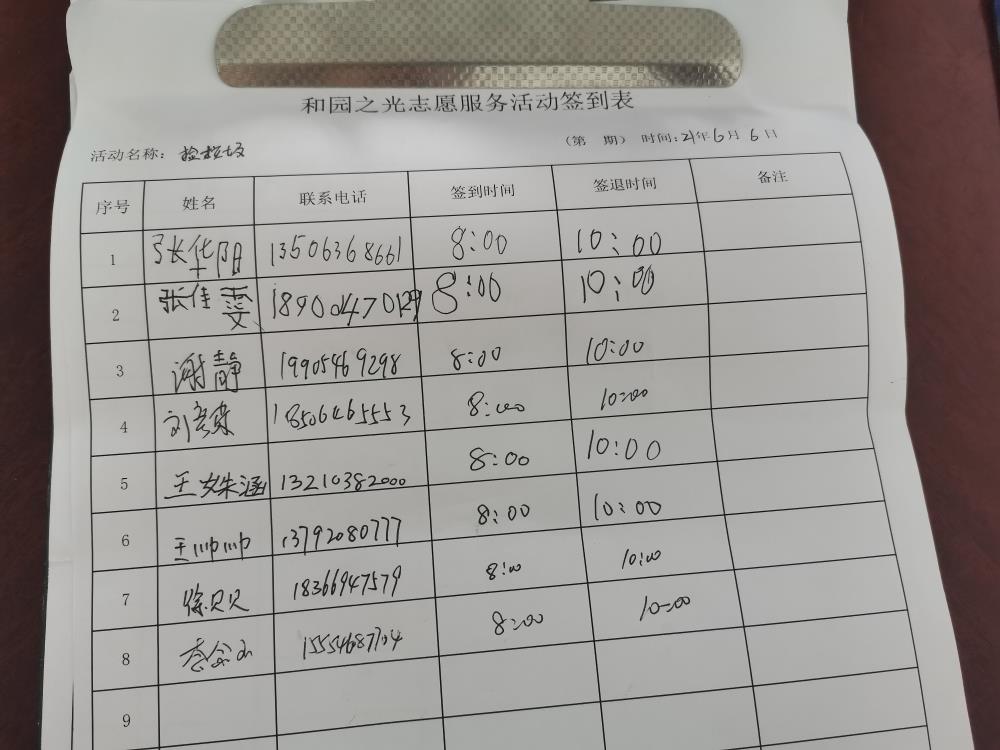 和园之光志愿服务活动签到表
活动名称：捡垃圾 （第 期） 时间：21年6月6日
序号 姓名 联系电话 签到时间 签退时间 备注
1 张华阳 13506368661 8:00 10:00
2 张佳雯 18900470129 8:00 10:00
3 谢静 19905469298 8:00 10:00
4 刘彦霖 18506465553 8:00 10:00
5 王姝涵 13210382000 8:00 10:00
6 王帅帅 13792080777 8:00 10:00
7 徐贝贝 18366947579 8:00 10:00
8 15554687704 8:00 10:00
9